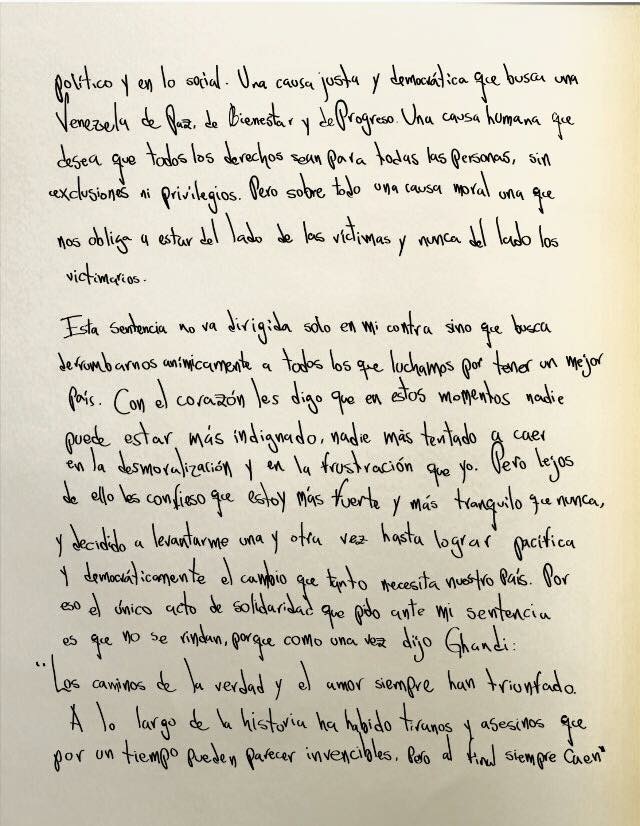 político y en lo social. Una causa justa y democrática que busca una
Venezuela de Paz, de Bienestar y de Progreso. Una causa humana que
desea que todos los derechos sean para todas las personas, sin
exclusiones ni privilegios. Pero sobre todo una causa moral una que
nos obliga a estar del lado de las víctimas y nunca del lado los
victimarios.
Esta sentencia no va dirigida solo en mi contra sino que busca
derrumbarnos anímicamente a todos los que luchamos por tener un mejor
país. Con el corazón les digo que en estos momentos nadie
puede estar más indignado, nadie más tentado a caer
en la desmoralización y en la frustración que yo. Pero lejos
de ello les confieso que estoy más fuerte y más tranquilo que nunca,
y decidido a levantarme una y otra vez hasta lograr pacífica
y democráticamente el cambio que tanto necesita nuestro país. Por
eso el único acto de solidaridad que pido ante mi sentencia
es que no se rindan, porque como una vez dijo Ghandi:
"Los caminos de la verdad y el amor siempre han triunfado.
A lo largo de la historia ha habido tiranos y asesinos que
por un tiempo pueden parecer invencibles, Pero al final siempre Caen"